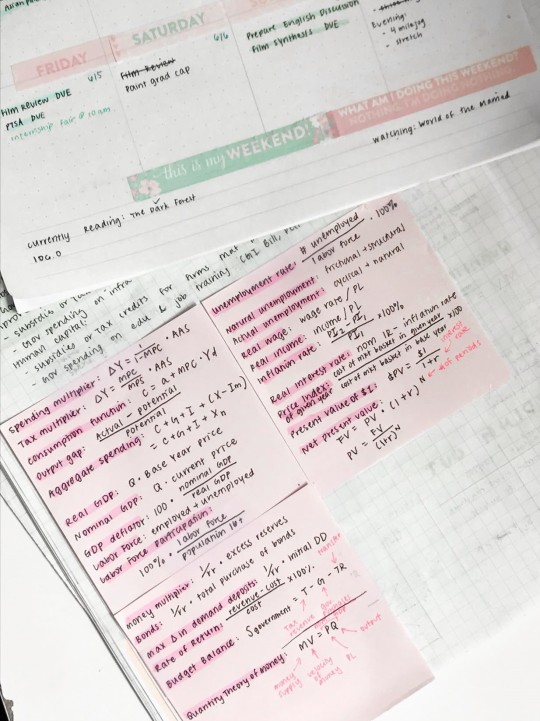 FRIDAY
6/5
Film Review DUE
PTSA DUE
internship fair @ 10am
SATURDAY
6/6
Film Review
paint grad cap
Prepare English Discussion
Film synthesis DUE
Evening:
- 4 mile jog
- stretch
this is my WEEKEND!
WHAT AM I DOING THIS WEEKEND?
NOTHING. I'M DOING NOTHING.
currently Reading: The Dark Forest
watching: World of the Married
106.0
- subsidies or tax credits for firms that
- Gov spending on infra
Human capital:
- subsidies or tax credits
- Gov spending on edu & job training (GI Bill,
Spending multiplier: ΔY = 1/1-MPC · AAS
Tax multiplier: ΔY = MPC/MPS · AAS
Consumption function: C = a + MPC · Yd
Output gap: Actual - potential / potential
Aggregate spending: C + G + I + (X - Im)
= C + G + I + Xn
Real GDP: Q · Base Year price
Nominal GDP: Q · current price
GDP deflator: 100 · nominal GDP / real GDP
Labor Force: employed + unemployed
Labor Force Participation:
100% · labor force / population 16+
unemployment rate: # unemployed / labor force · 100%
Natural unemployment: frictional + structural
Actual unemployment: cyclical + natural
Real wage: wage rate / PL
Real income: income / PL
Inflation rate: PI2 - PI1 / PI1 × 100%
Real interest rate: nom IR - inflation rate
Price Index: cost of mkt basket in given year / cost of mkt basket in base year × 100
of given year
Present value of $1: $PV = $1 / (1+r)^N
interest rate
# of periods
Net present value:
FV = PV · (1+r)^N
PV = FV / (1+r)^N
money multiplier: 1/rr · excess reserves
Bonds: 1/rr · total purchase of bonds
max Δ in demand deposits: 1/rr · initial DD
Rate of Return: revenue - cost / cost × 100%
Budget Balance: S government = T - G - TR
transfer
Tax revenue
Quantity Theory of money: MV = PQ
money supply
velocity of money
PL
output